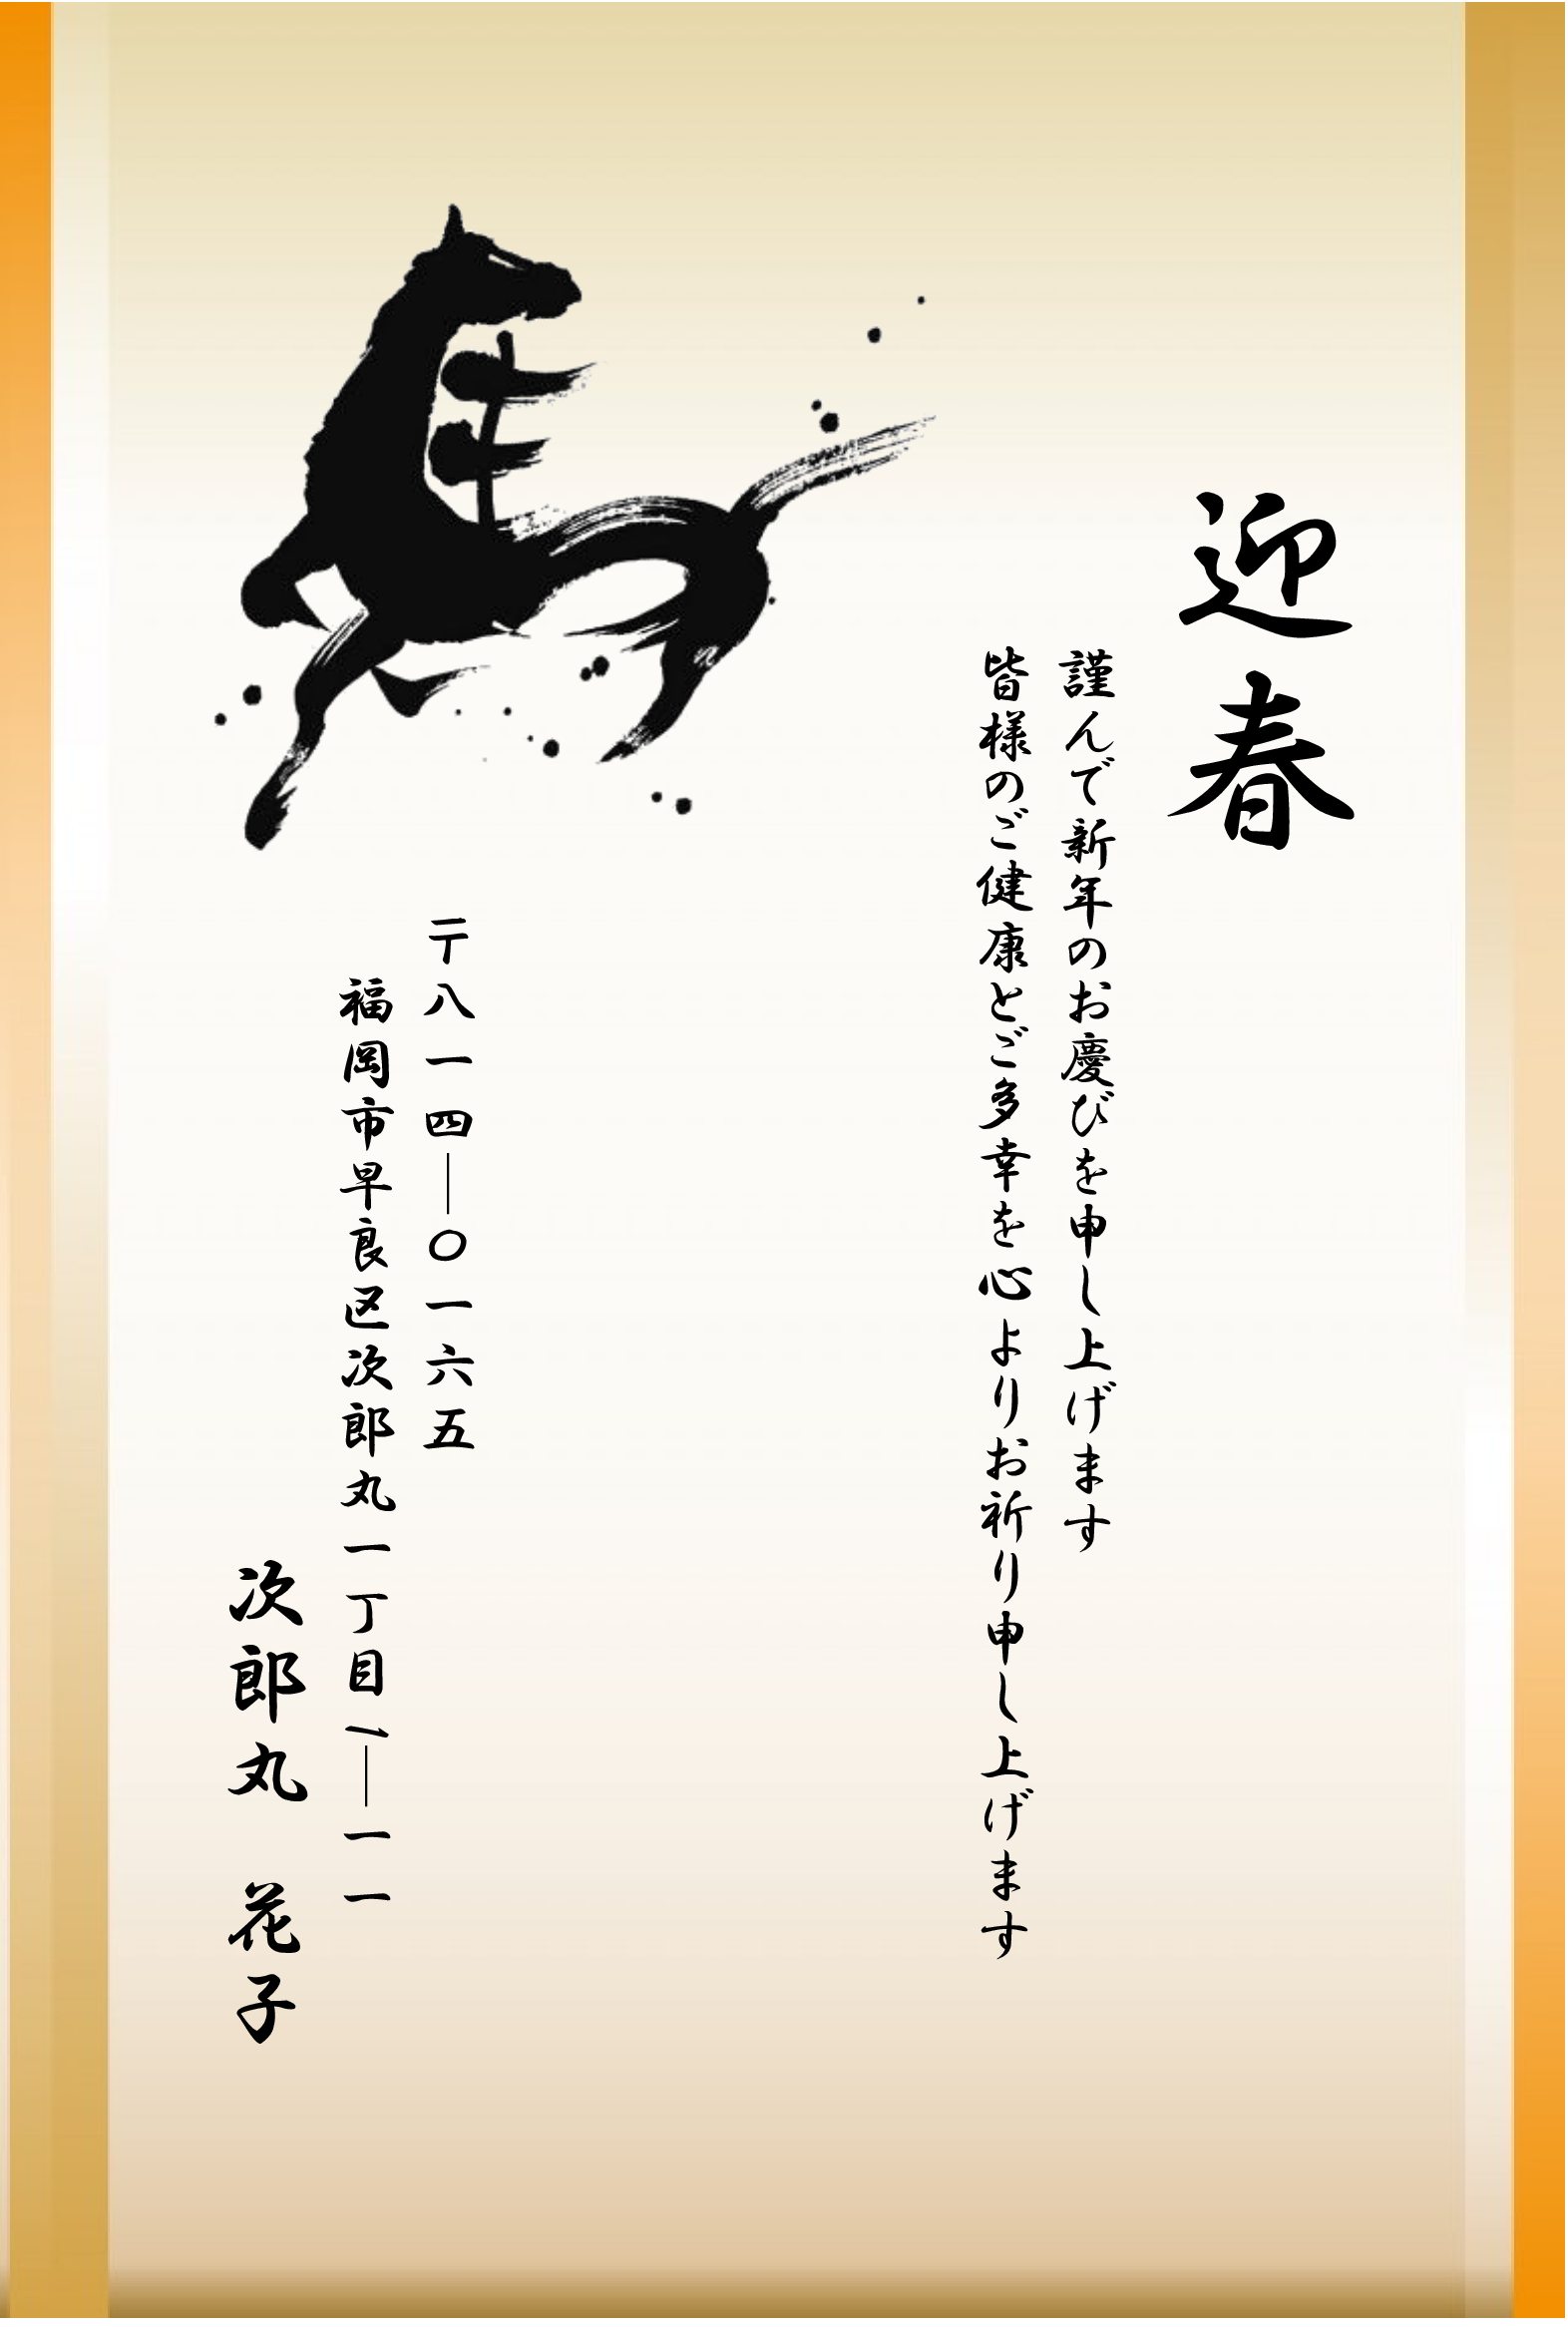 迎春
謹んで新年のお慶びを申し上げます
皆様のご健康とご多幸を心よりお祈り申し上げます
〒八一四―〇一六五
福岡市早良区次郎丸一丁目1―一一
次郎丸　花子